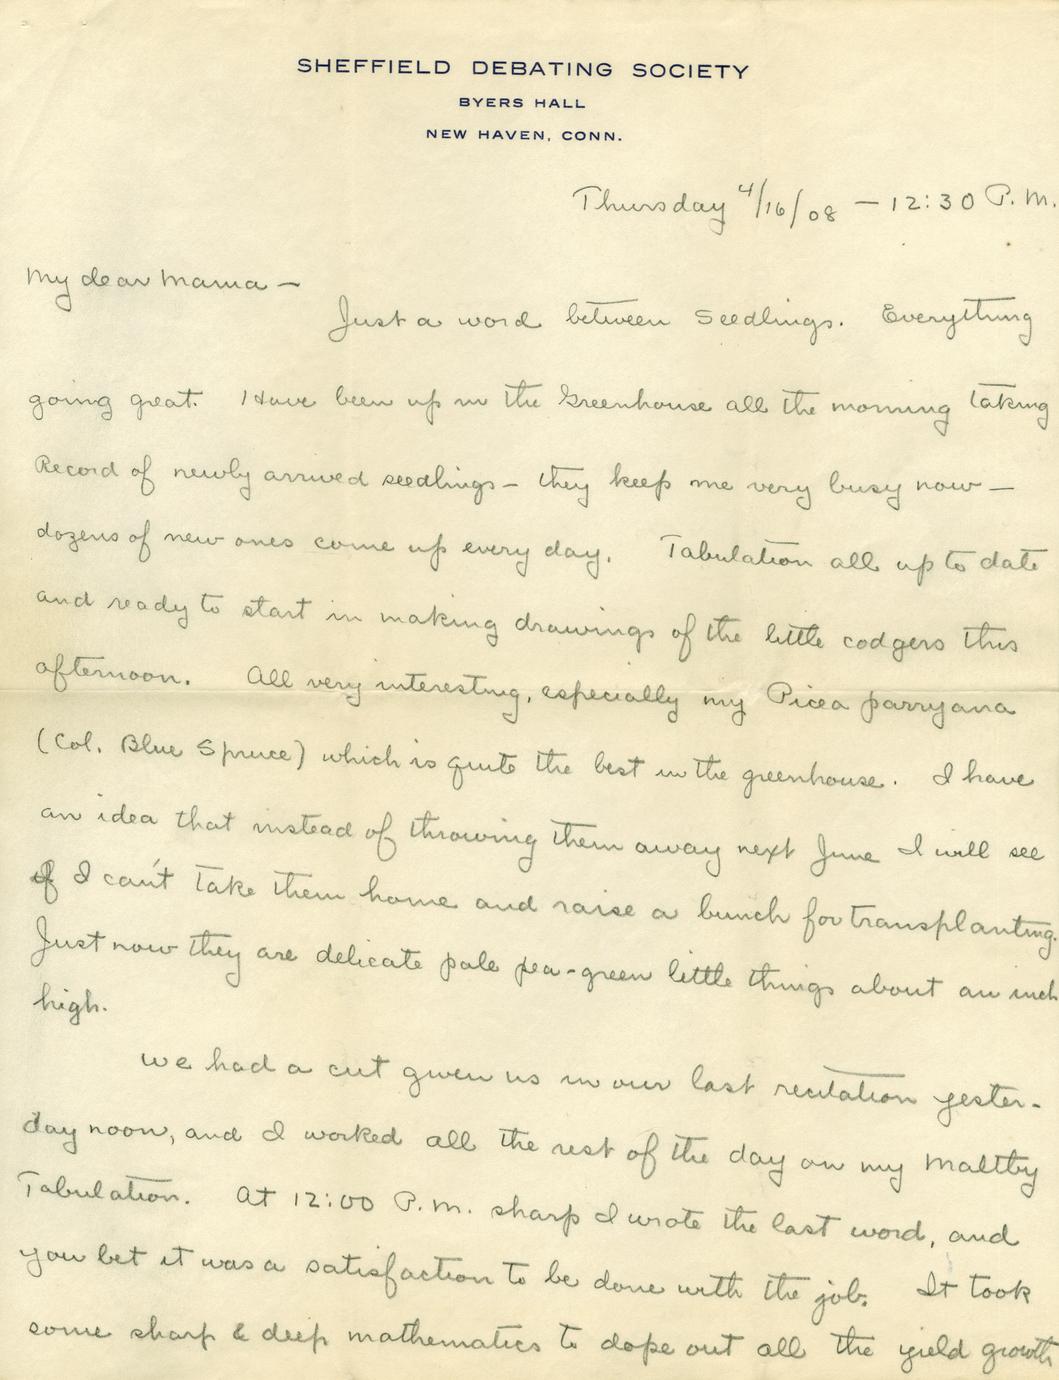 SHEFFIELD DEBATING SOCIETY
BYERS HALL
NEW HAVEN, CONN.
Thursday 4/16/08 — 12:30 P.M.
My dear Mama —
Just a word between seedlings. Everything
going great. I Have been up in the Greenhouse all the morning taking
Record of newly arrived seedlings — they keep me very busy now —
dozens of new ones come up every day. Tabulation all up to date
and ready to start in making drawings of the little codgers this
afternoon. All very interesting, especially my Picea parryana
(Col. Blue Spruce) which is quite the best in the greenhouse. I have
an idea that instead of throwing them away next June I will see
if I can't take them home and raise a bunch for transplanting.
Just now they are delicate pale pea-green little things about an inch
high.
We had a cut given us in our last recitation yester-
day noon, and I worked all the rest of the day on my Maltby
Tabulation. At 12:00 P.M. sharp I wrote the last word, and
you bet it was a satisfaction to be done with the job. It took
some sharp & deep mathematics to dope out all the yield growth